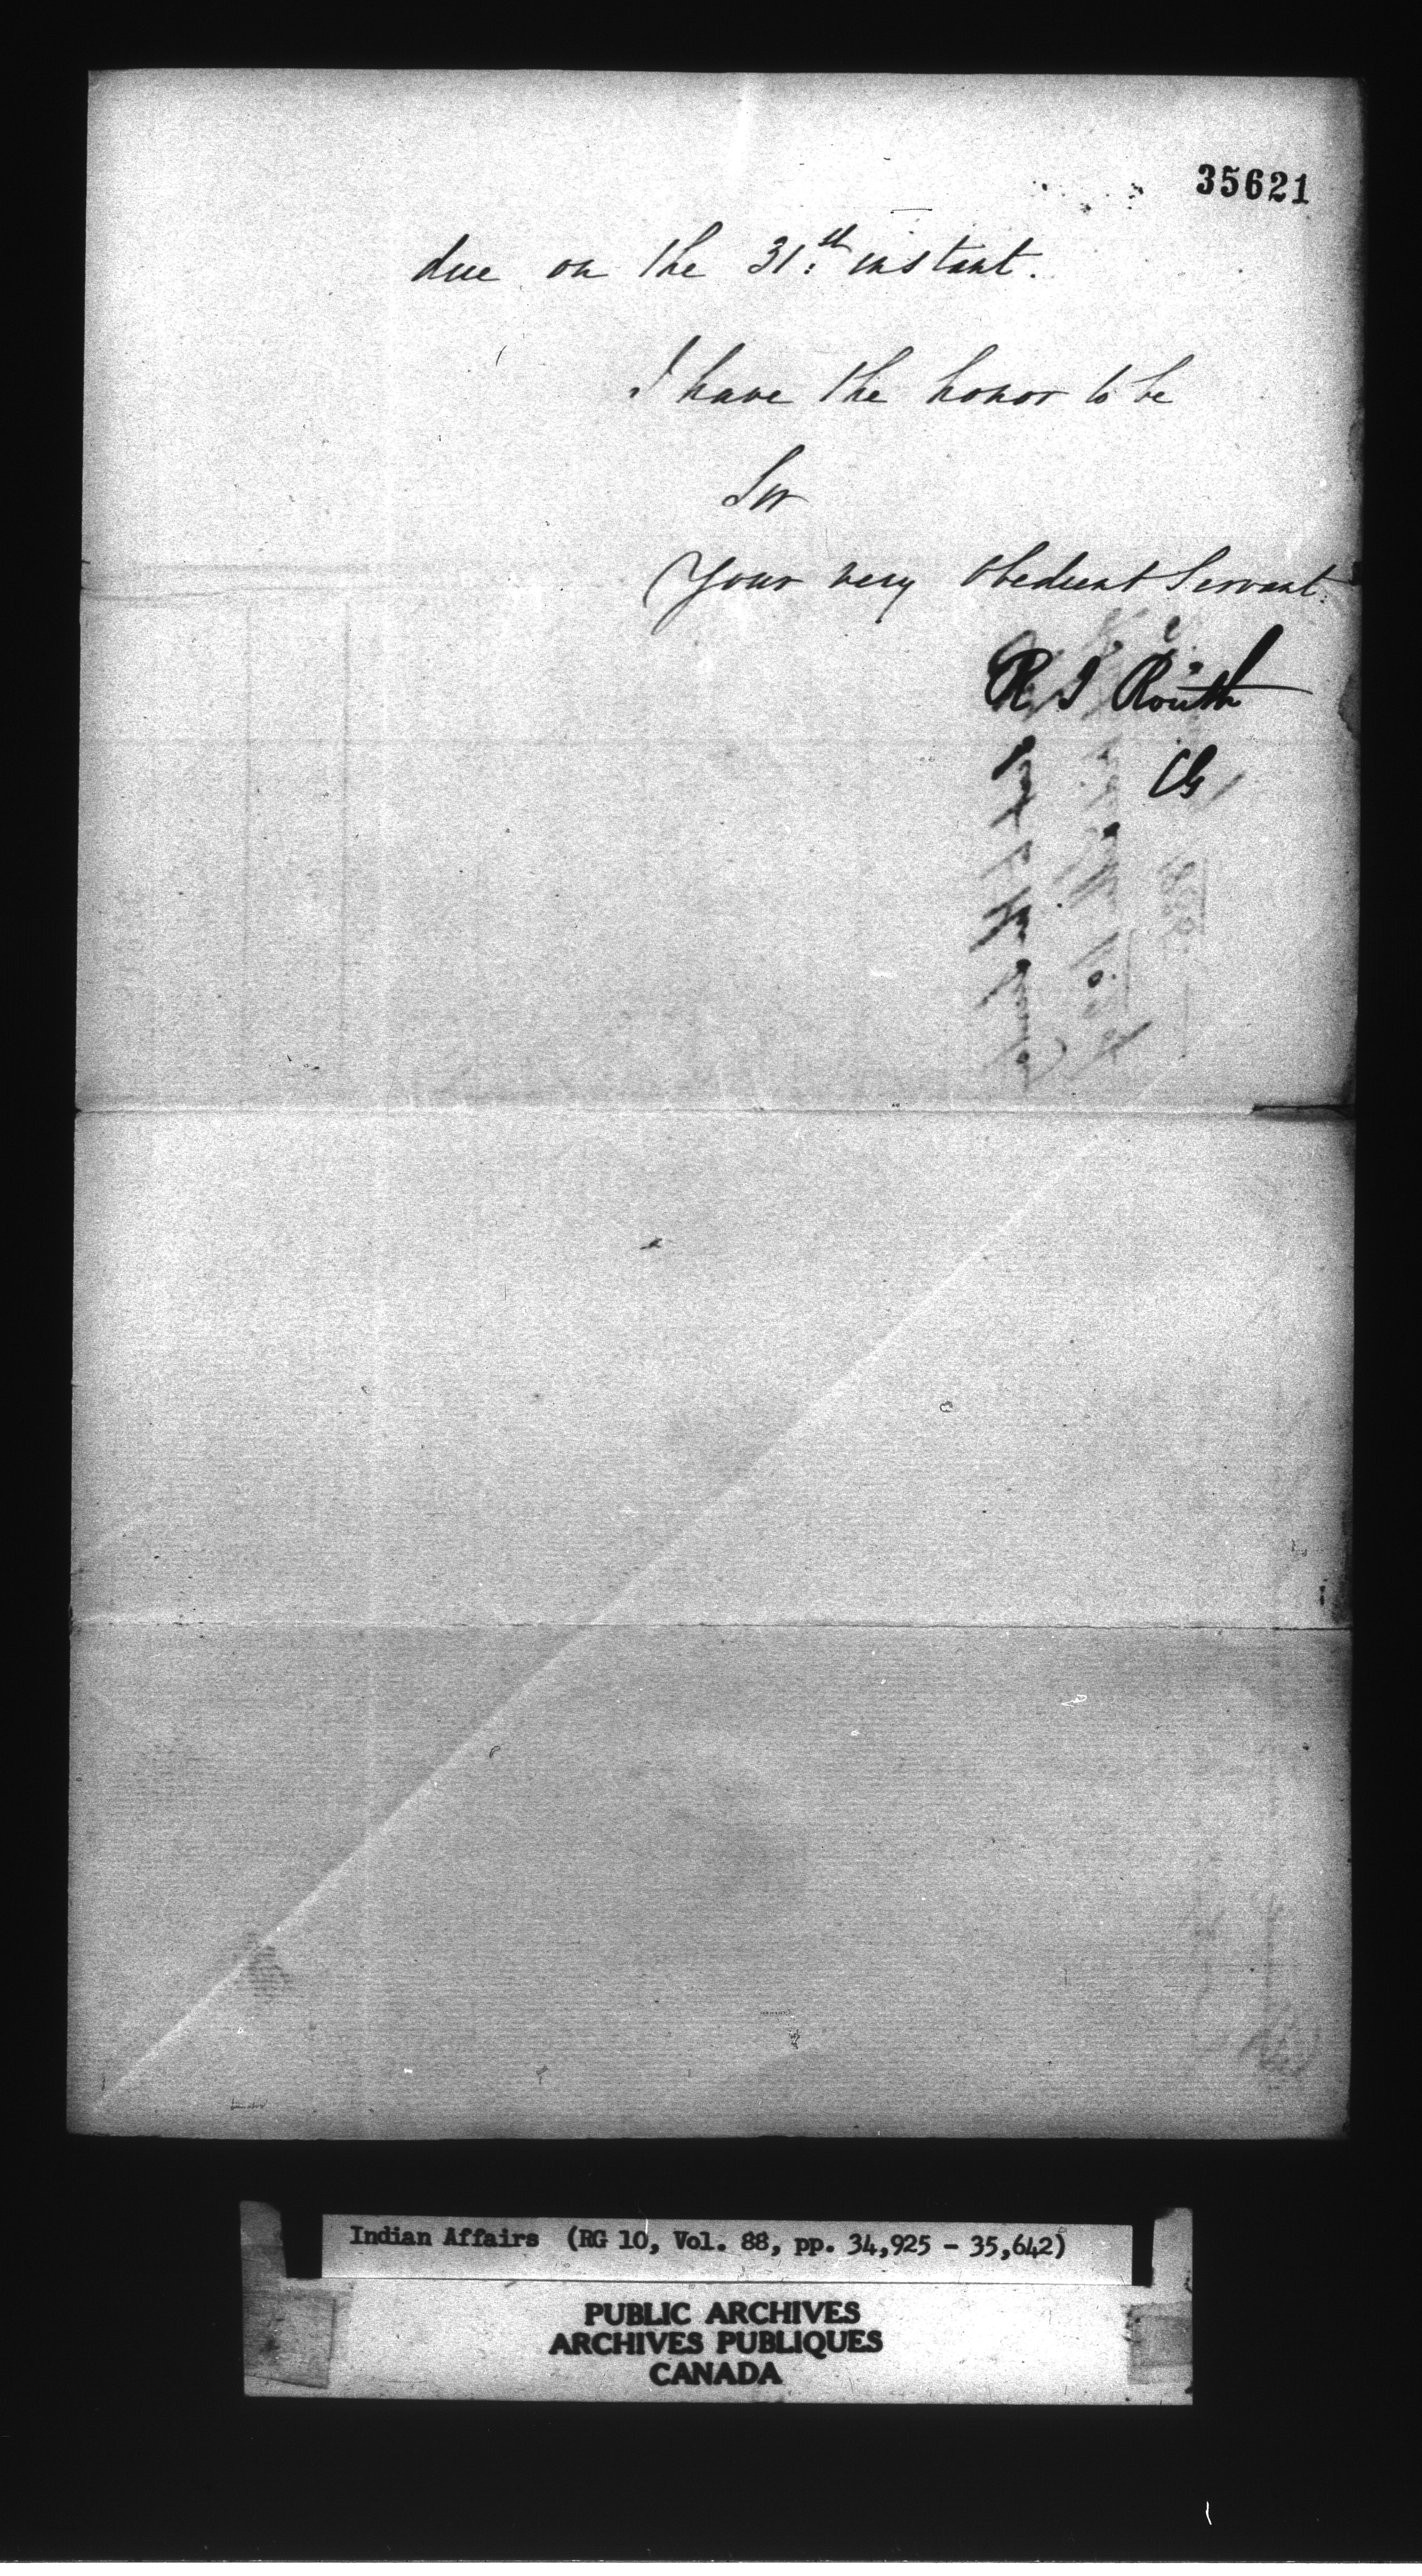 35621
due on the 31.st instant.
I have the honor to be
Sir
Your very obedient Servant.
R I Routh
CG
Indian Affairs (RG 10, Vol. 88, pp. 34,925 - 35,642)
PUBLIC ARCHIVES
ARCHIVES PUBLIQUES
CANADA